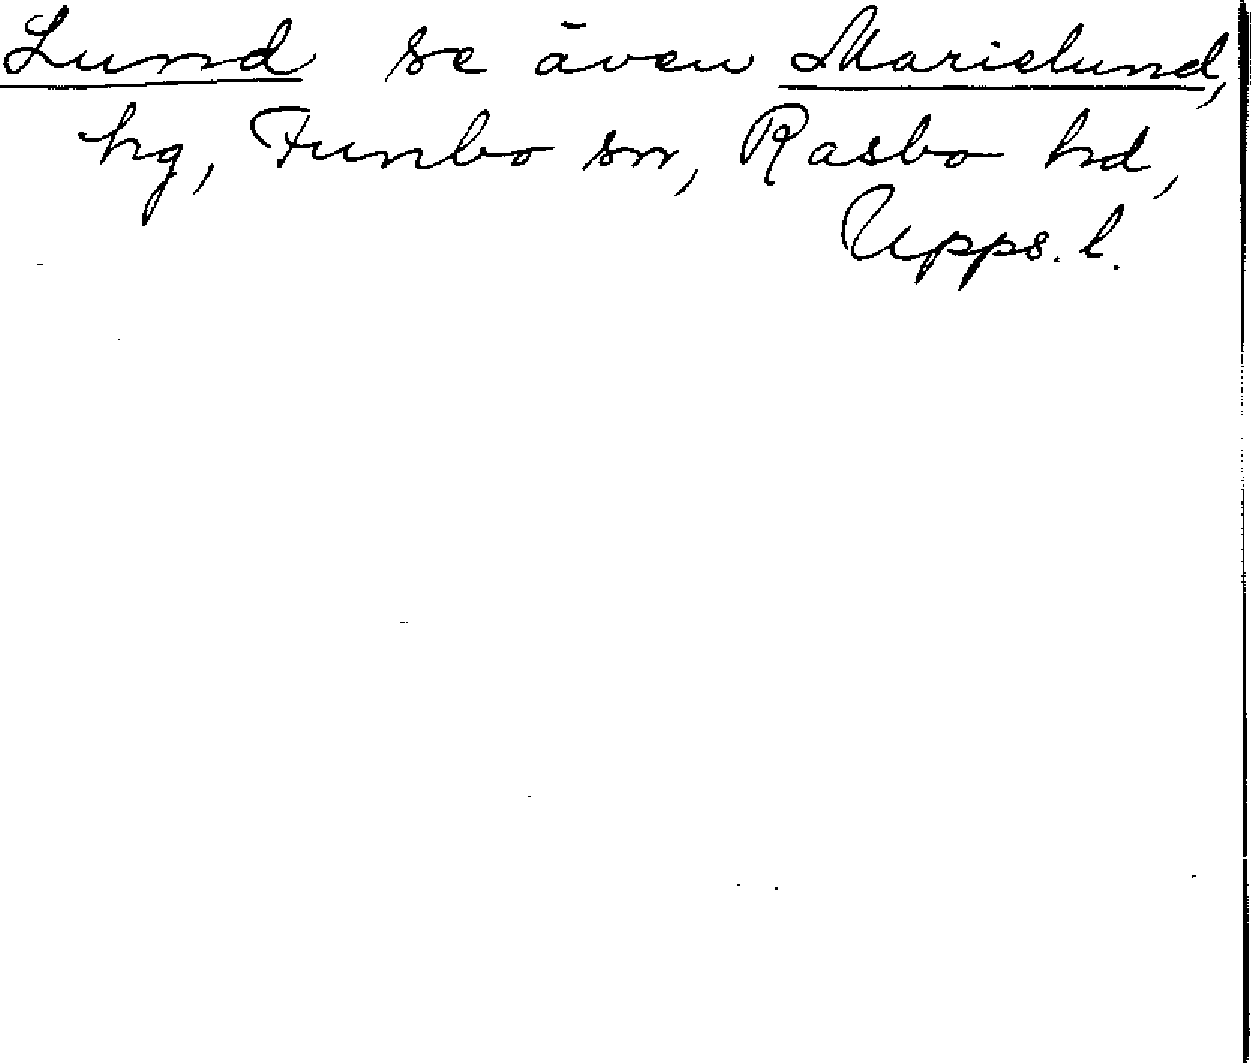 Lund se även Marielund,
hg, Funbo sn, Rasbo hd,
Upps. l.